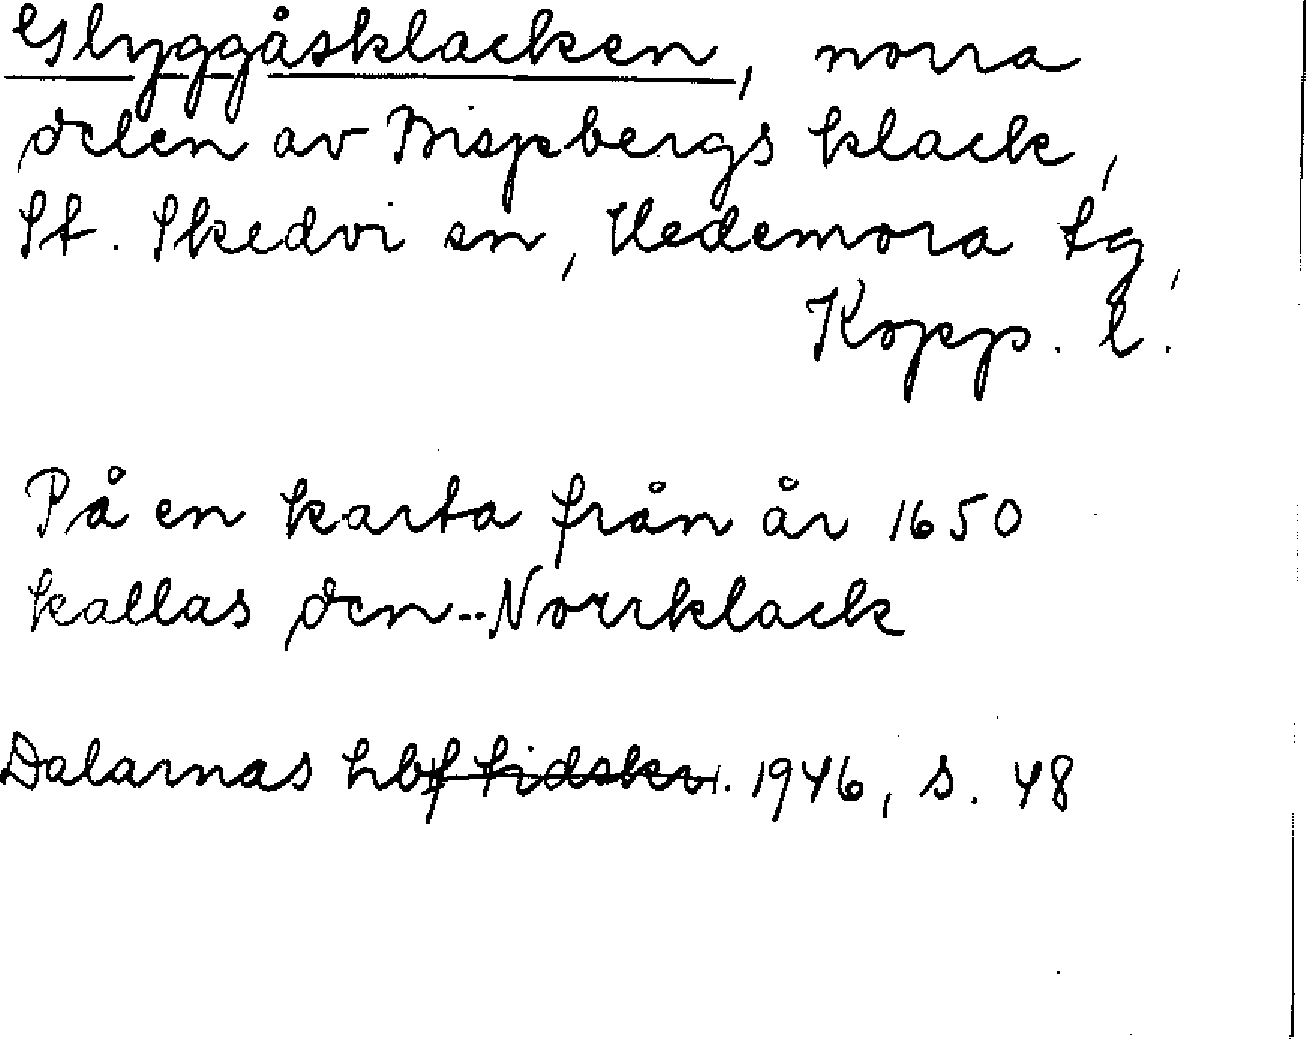 Glyggåsklacken, norra
delen av Bispbergs klack,
St. Skedvi sn, Hedemora tg,
Kopp. l.
På en karta från år 1650
kallas den Norrklack
Dalarnas hbf tidskr. 1946, s. 48